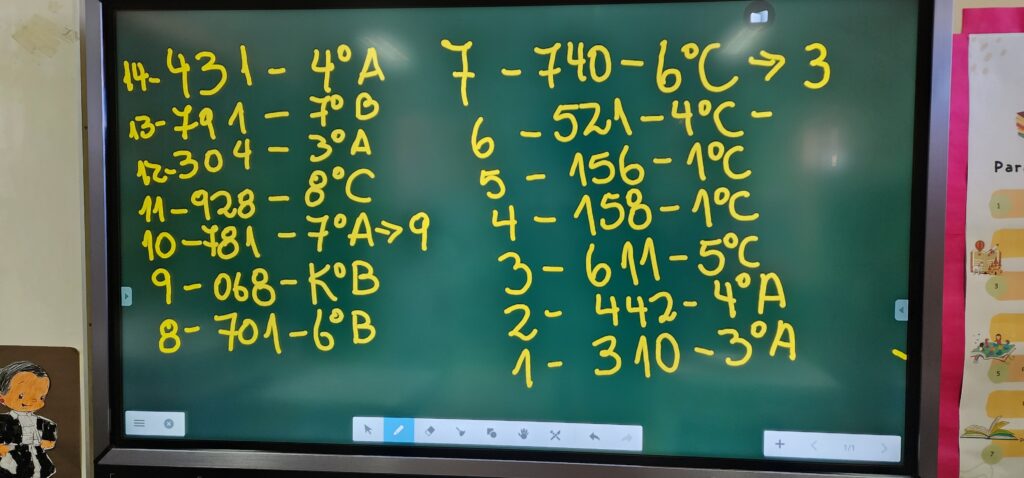 14-431-4ºA
13-791-7ºB
12-304-3ºA
11-928-8ºC
10-781-7ºA→9
9-068-KºB
8-701-6ºB
7-740-6ºC→3
6-521-4ºC-
5-156-1ºC
4-158-1ºC
3-611-5ºC
2-442-4ºA
1-310-3ºA
1/1
Par
1
3
5
7